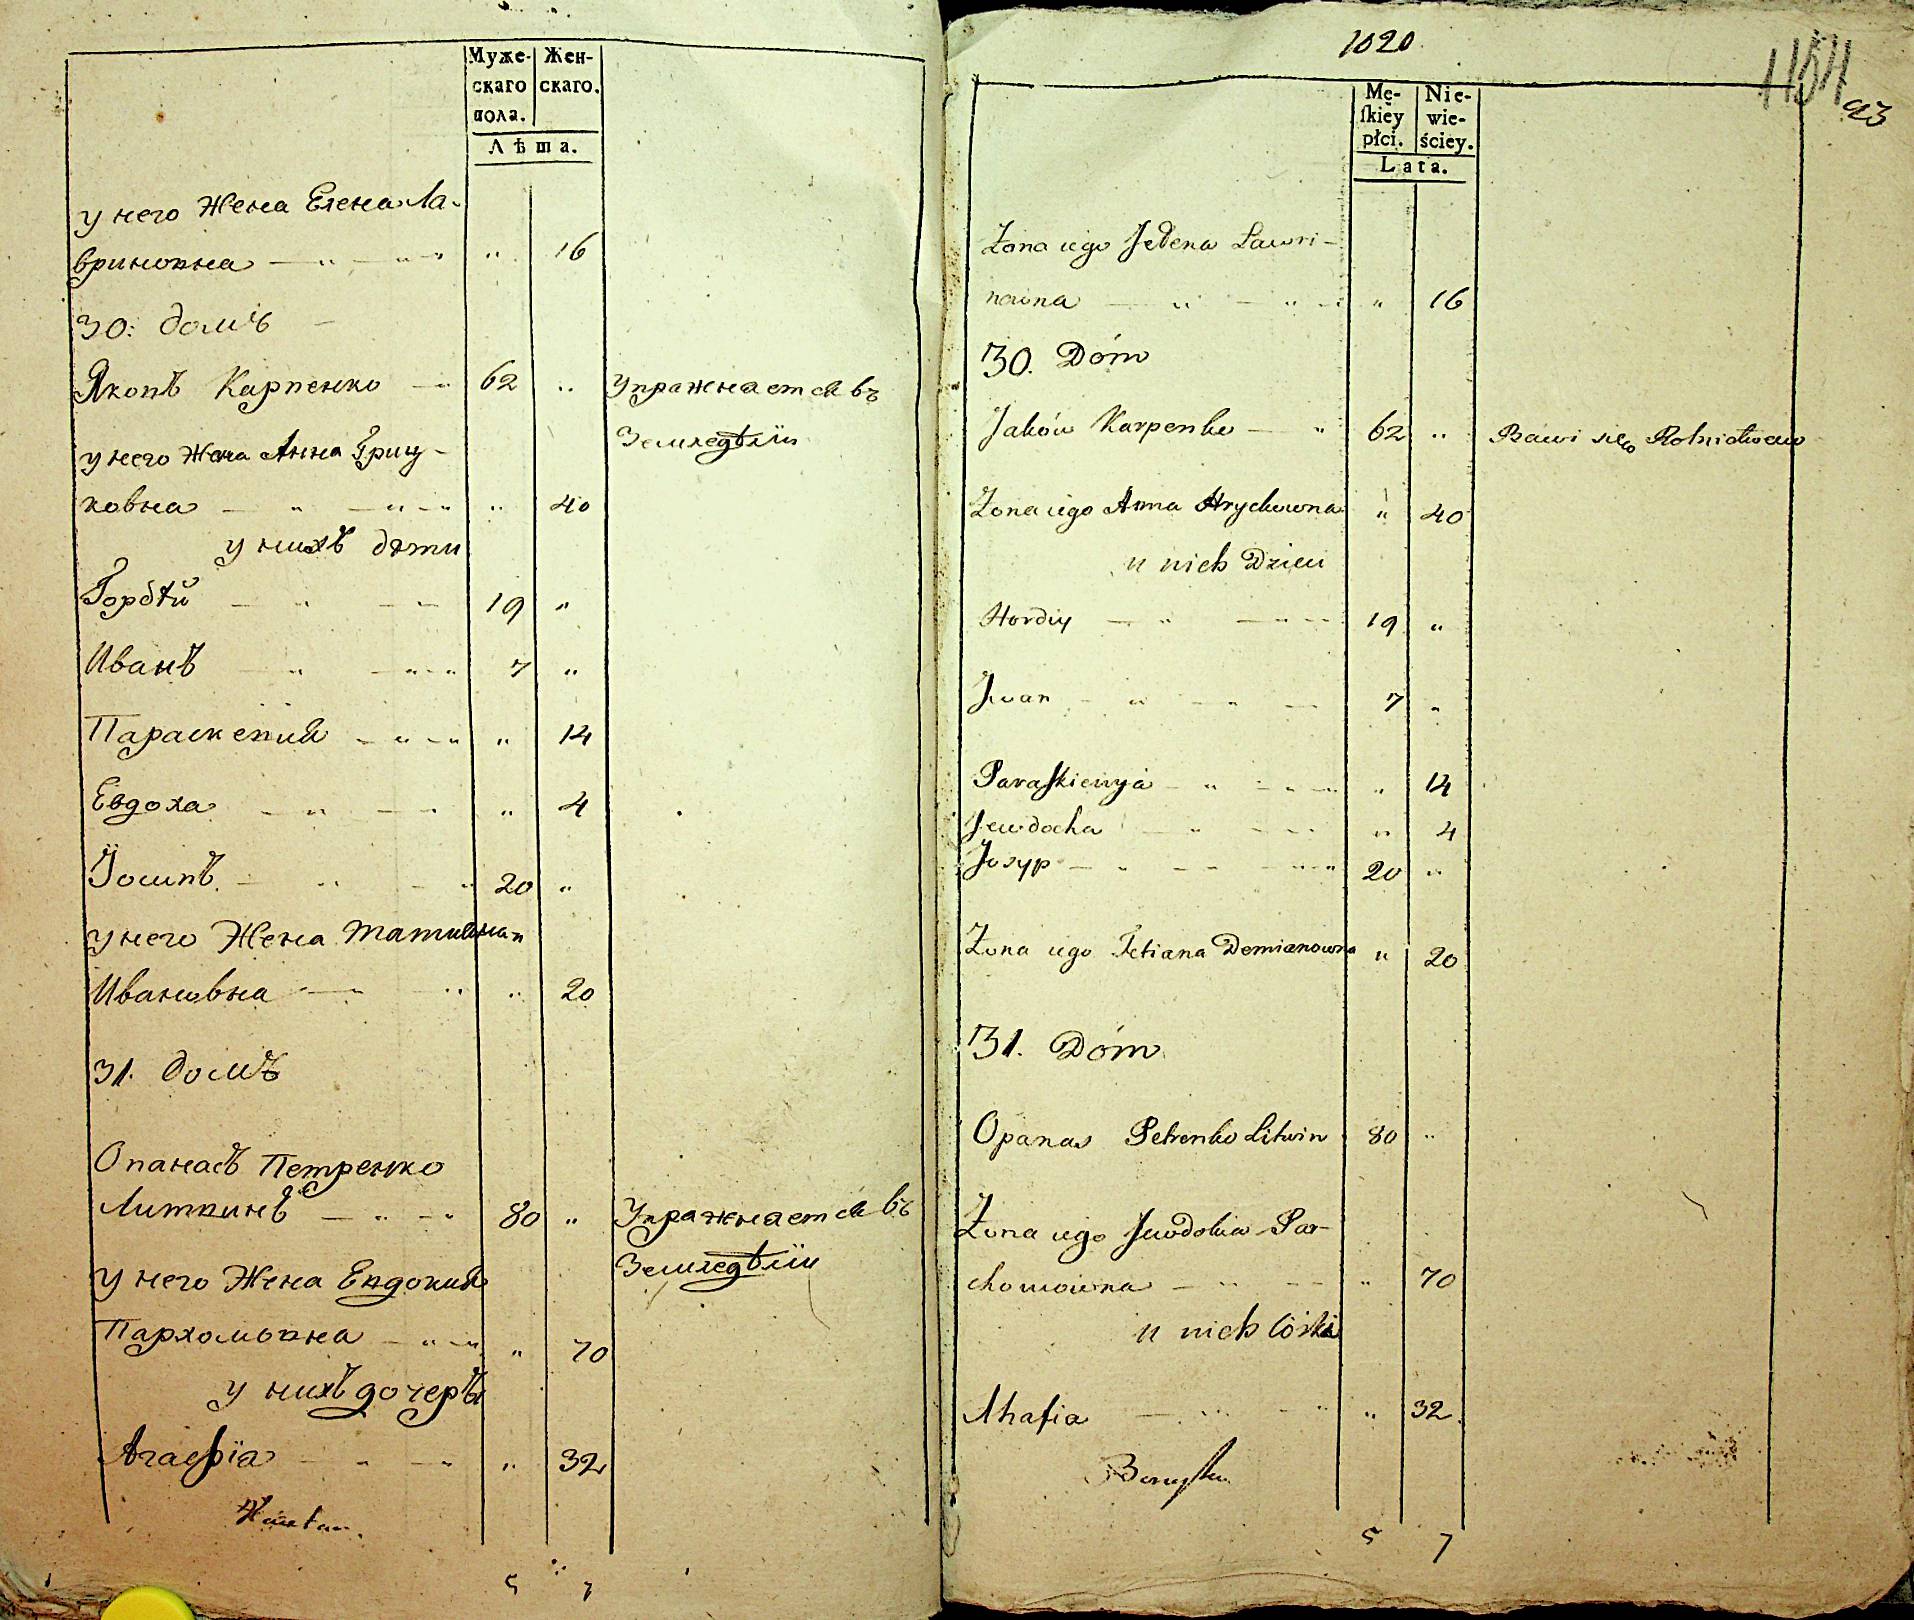 Муже-
скаго
пола.
Жен-
скаго.
Лѣта.
у него Жена Елена Ла-
вриновна — „ — „ „ 16
30: домъ —
Яковъ Карпенко — „ 62 „ Упражнается въ
Земледѣлiи
у него Жена Анна Гриц-
ковна — „ — „ — „ „ 40
у нихъ дѣти
Гордѣй — „ — — 19 „
Иванъ — „ — „ — „ 7 „
Параскевия — „ — „ „ 14
Евдоха — „ — — „ 4
Iосипъ — „ — „ 20 „
у него Жена Татияна
Ивановна — „ „ „ 20
31. домъ
Опанасъ Петренко
Литвинъ — „ — „ 80 „ Упражнается въ
Земледѣлiи
у него Жена Евдокия
Пархомовна — „ — „ „ 70
у нихъ дочерѣ
Агафiа — „ — „ „ 32
5 7
1020
1154
93
Mę-
ſkiey
płci.
Nie-
wie-
ściey.
Lata.
Żona iego Jelena Lawri-
nowna — „ — „ — „ „ 16
30. Dóm
Jaków Karpenko — „ 62 „ Bawi się Rolnictwem
Żona iego Anna Hryckowna „ 40
u nich Dzieci
Hordiy — „ — „ — 19 „
Jwan — „ — „ — 7 „
Paraſkiewya — „ — „ — „ „ 14
Jewdocha — „ — „ — „ 4
Josyp — „ — — — „ „ 20 „
Żona iego Tetiana Demianowna „ 20
31. Dóm
Opanas Petrenko Litwin 80 „
Żona iego Jewdokia Par-
chomowna — „ — — „ 70
u nich Córki
Ahafia — „ — „ „ 32
5 7